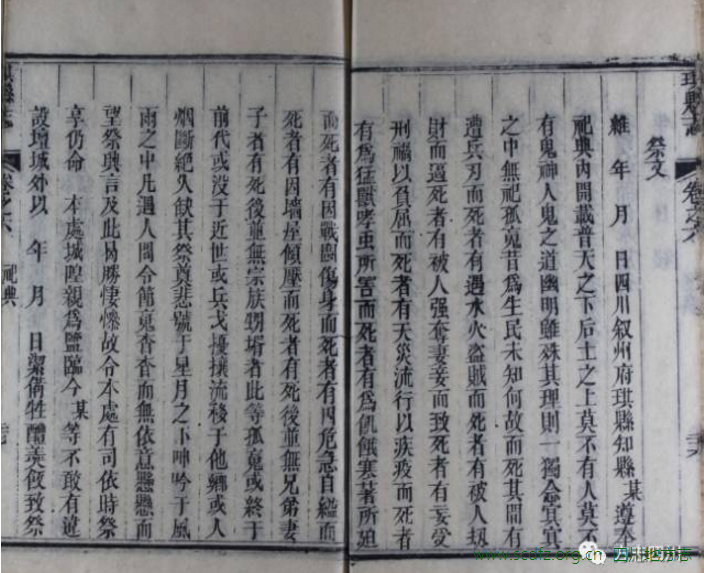 珙縣志
卷之六
祭文
維 年 月 日四川叙州府珙縣知縣某遵奉
祀典内開載普天之下后土之上莫不有人莫不
有鬼神人鬼之道幽明雖殊其理則一獨念冥冥
之中無祀孤䰟昔爲生民未知何故而死其間有
遭兵刃而死者有遇水火盜賊而死者有被人刼
財而逼死者有被人强奪妻妾而致死者有妄受
刑禍以負屈而死者有天災流行以疾疫而死者
有爲猛獸孝虫所害而死者有爲飢餓寒暑所廹
而死者有因戰鬭傷身而死者有因危急自縊而
死者有因墻屋傾壓而死者有死後並無兄弟妻
子者有死後並無宗族甥壻者此等孤䰟或終于
前代或没于近世或兵戈擾攘流移于他鄉或人
烟斷絶久缺其祭奠悲號于星月之下呻吟于風
雨之中凡遇人間令節䰟杳杳而無依意懸懸而
望祭興言及此曷勝悽慘故令本處有司依時祭
享仍命 本處城隍親爲鹽臨今某等不敢有違
設壇城外以 年 月 日潔俻牲醴羙飯致祭
珙縣志
卷之六 祀典
www.scdfz.org.cn